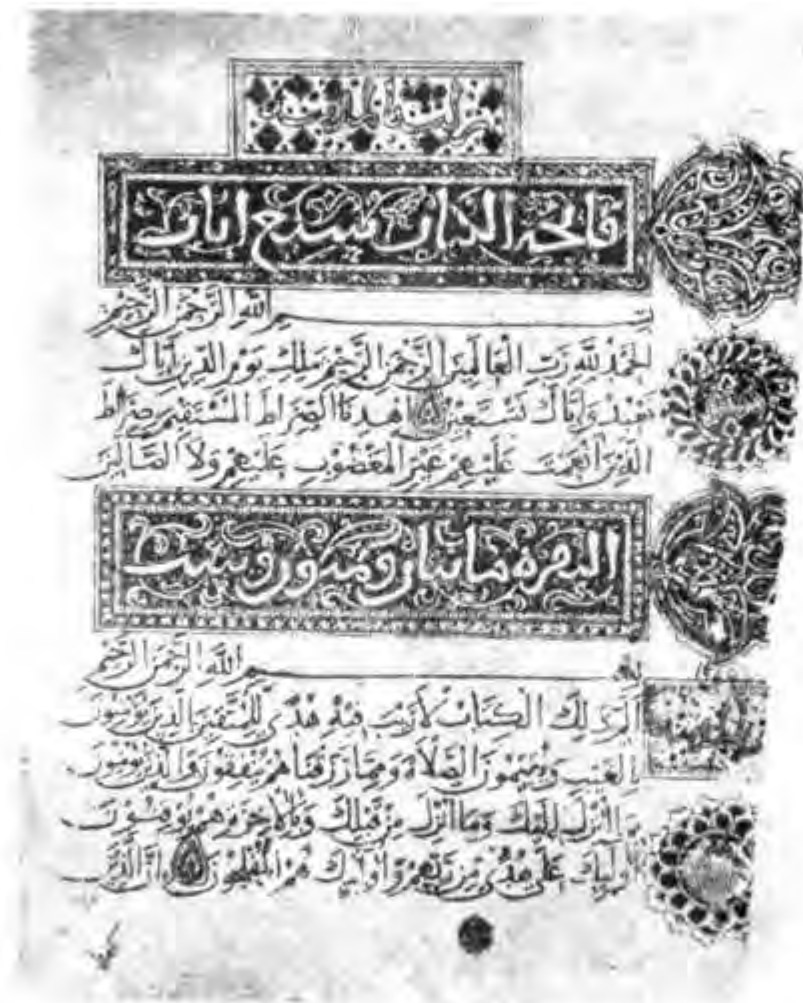 فاتحة الكتاب سبع ايات
بسم الله الرحمن الرحيم
الحمد لله رب العالمين الرحمن الرحيم ملك يوم الدين اياك
نعبد واياك نستعين اهدنا الصراط المستقيم صراط
الذين انعمت عليهم غير المغضوب عليهم ولا الضالين
البقرة مايتان وثمنون وست
بسم الله الرحمن الرحيم
الم ذلك الكتاب لا ريب فيه هدى للمتقين الذين يؤمنون
بالغيب ويقيمون الصلاة ومما رزقناهم ينفقون والذين يؤمنون
بما انزل اليك وما انزل من قبلك وبالاخرة هم يوقنون
اوليك على هدى من ربهم واوليك هم المفلحون ان الذين